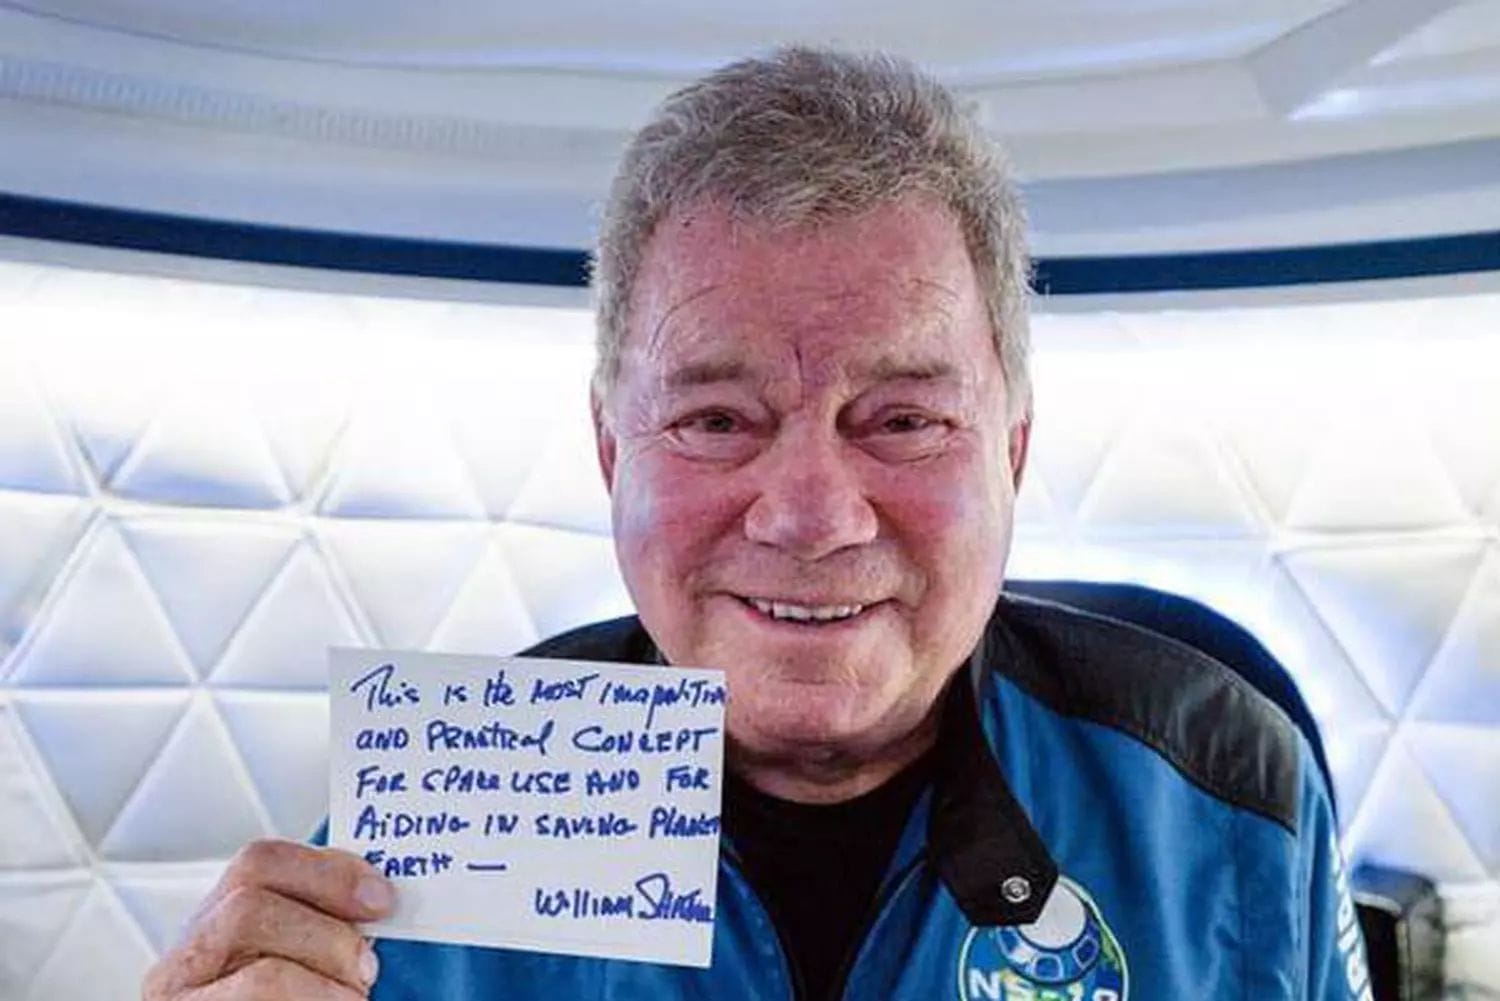 This is the most imaginative
and practical concept
for space use and for
aiding in saving planet
earth —
William Shatner
NS-18